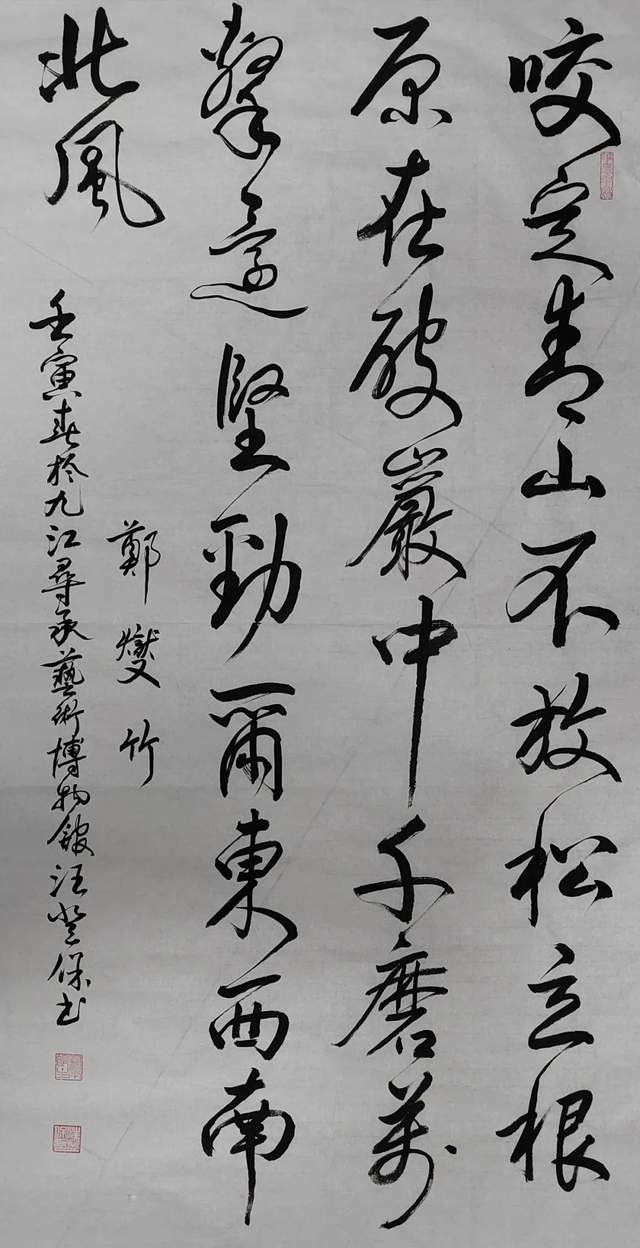 咬定青山不放松立根
原在破巖中千磨萬
擊還堅勁爾東西南
北風
鄭燮竹
壬寅春於九江尋承藝術博物館汪登保书